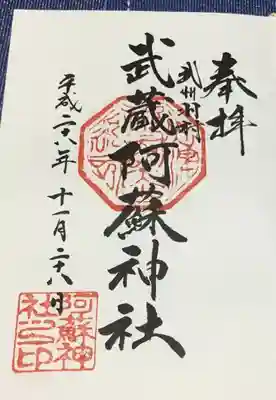 奉拝
武州羽村
武蔵阿蘇神社
平成二十八年十一月二十八日
阿蘇神社之印